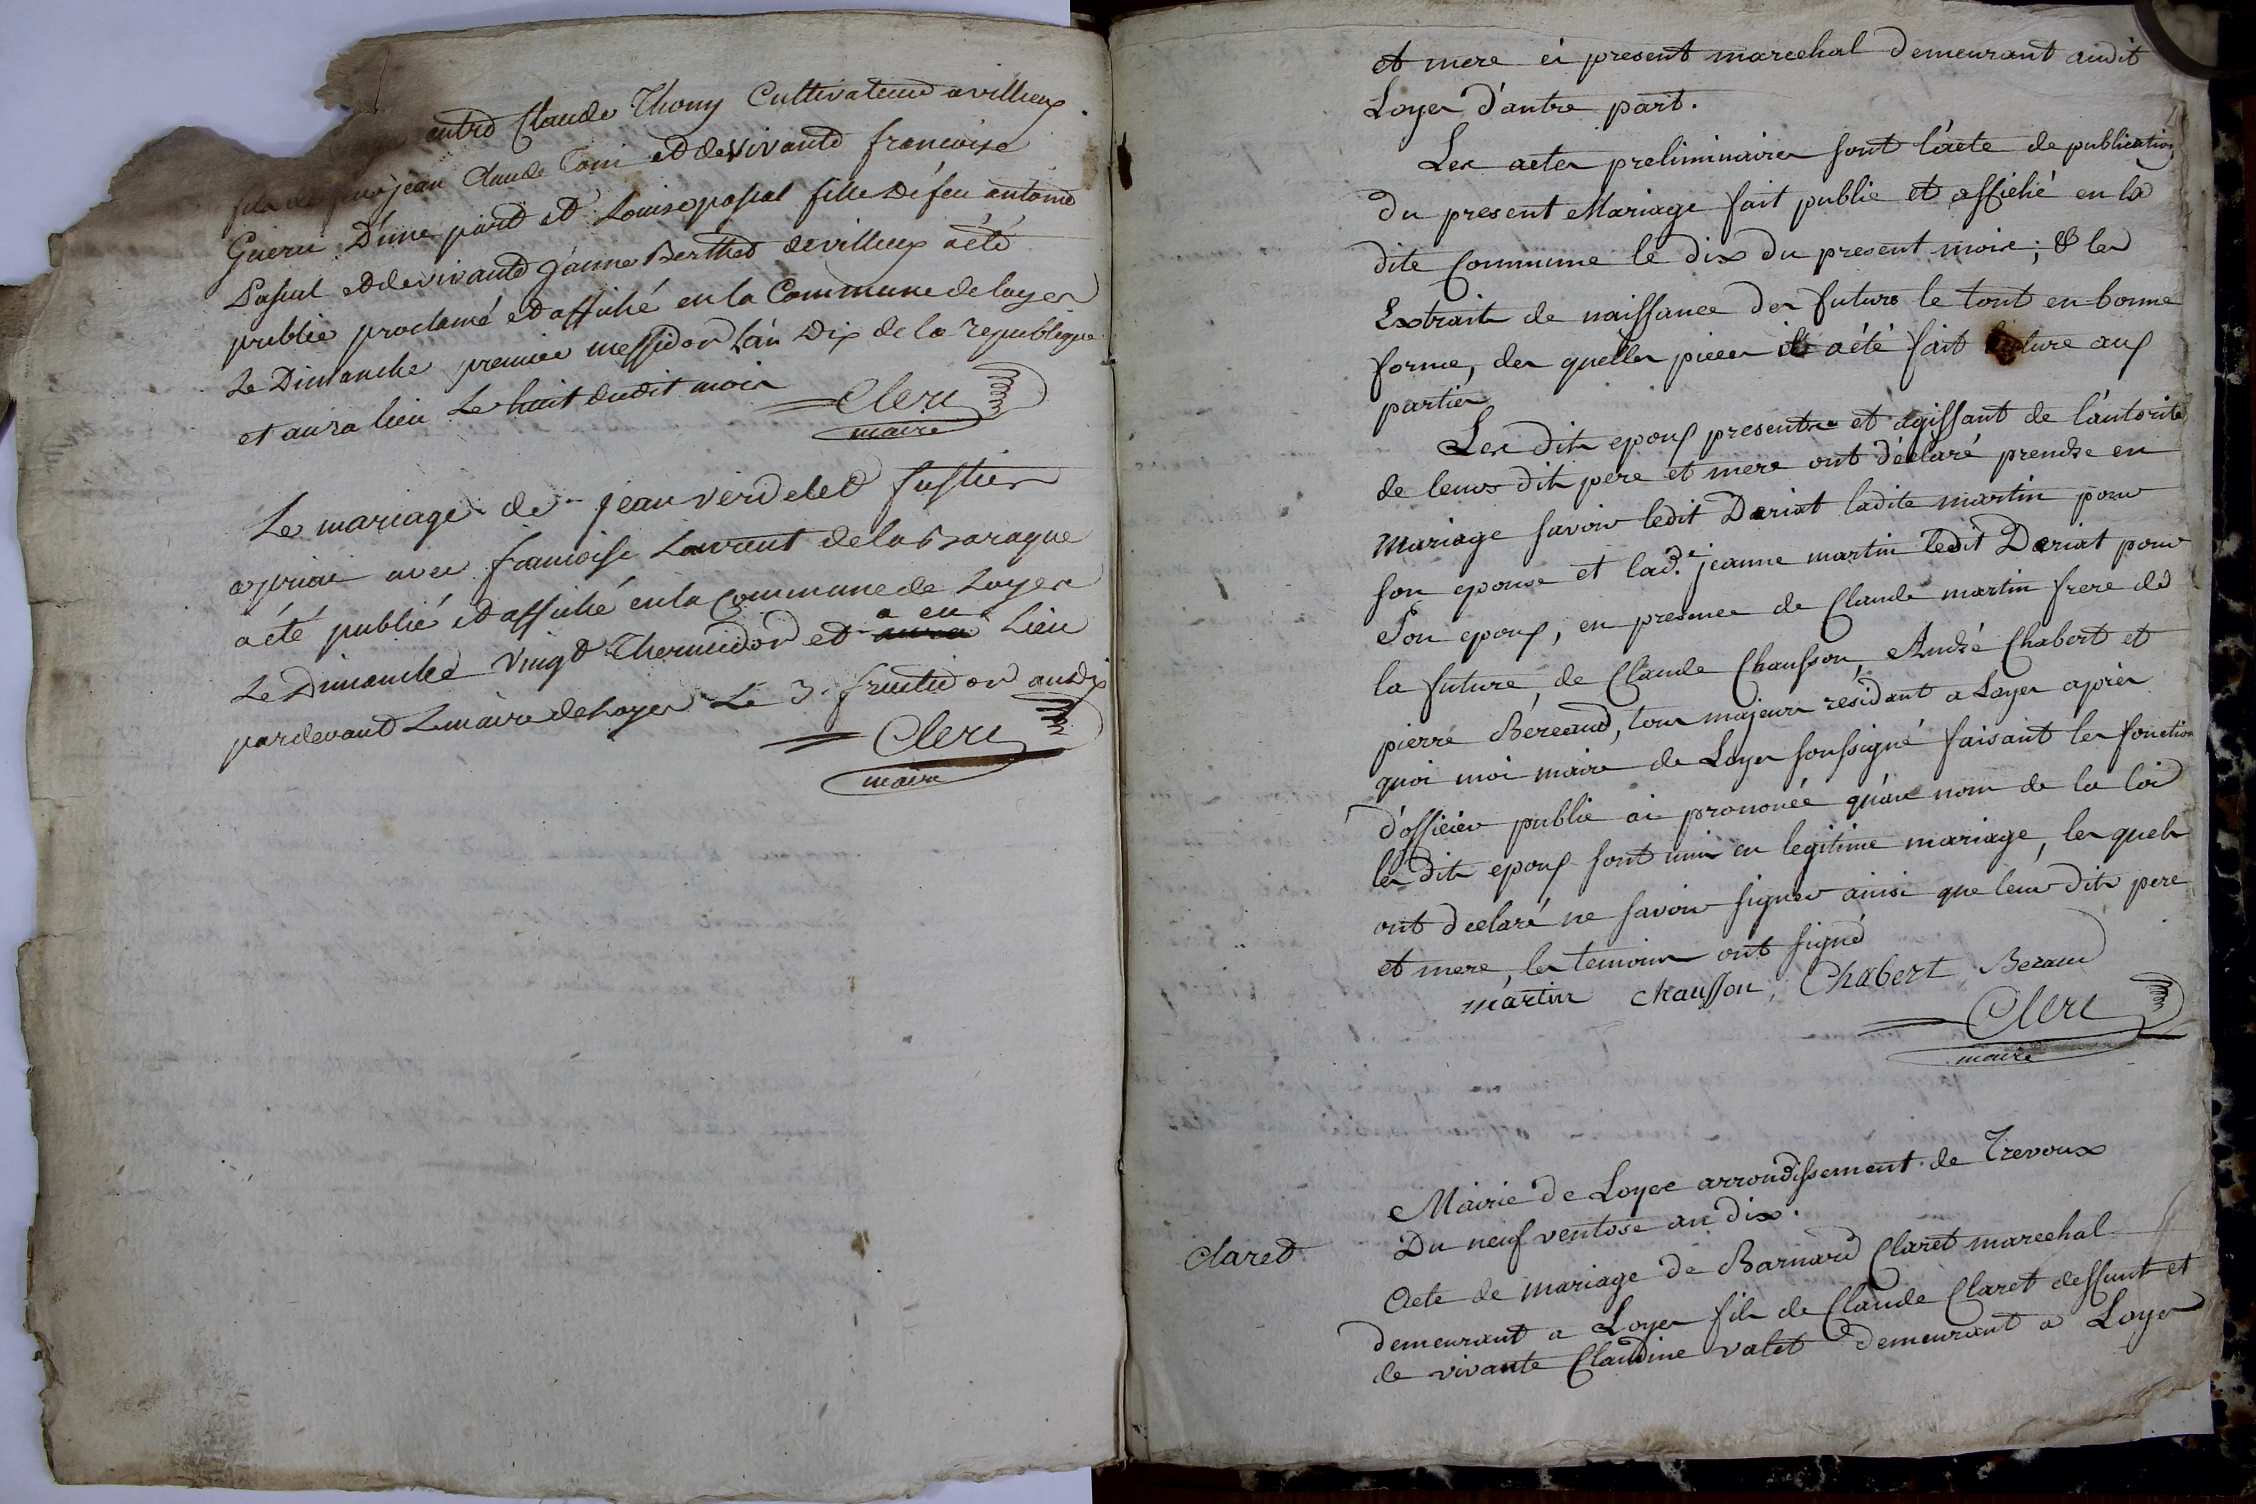 entre Claude Thomy Cultivateur a villieux
fils de feu jean Claude Tomi et de vivante francoise
Gueru D'une part et Louise pascal fille De feu antoine
Pascal et de vivante jeanne Berthet de villieux a été
publié proclamé et affiché en la Commune de loyes
Le Dimanche premier messidor L'an Dix de la republique
et aura lieu Le huit dudit mois
Clerc
maire
Le mariage de jean verdelet fustier
a priai avec francoise Laurent de la Baraque
a été publié et affiché en la Commune de Loyes
a eu
Le Dimanche vingt Thermidor et aura Lieu
pardevant Le maire de Loyes Le 3 fructidor an dix
Clerc
maire
et mere ci present marechal demeurant audit
Loyes d'autre part.
Les actes preliminaires sont l'acte de publication
du present Mariage fait publié et affiché en la
dite Commune le dix du present mois; & les
Extraits de naissance des futurs le tout en bonne
forme, des quelles pieces il a été fait lecture aux
parties
Les dits epoux presents et agissant de l'autorité
de leurs dits pere et mere ont déclaré prendre en
Mariage savoir ledit Dariat ladite martin pour
son epouse et lad.e jeanne martin ledit Dariat pour
Son epoux, en presence de Claude martin frere de
la future, de Claude Chausson, André Chabert et
pierre Béreaud, tous majeurs residant a Loyes après
quoi moi maire de Loyes soussigné faisant les fonction
d'officier public ai prononcé qu'au nom de la loi
les dits epoux sont unis en legitime mariage, les quels
ont declaré ne savoir signer ainsi que leur dits pere
et mere, les temoins ont signé
martin chausson, Chabert Beraud
Clerc
maire
Mairie de Loyes arrondissement de Trevoux
Du neuf ventose an dix.
Claret
Acte de mariage de Barnard Claret marechal
demeurant a Loyes fils de Claude Claret deffunt et
de vivante Claudine valet demeurant a Loyes